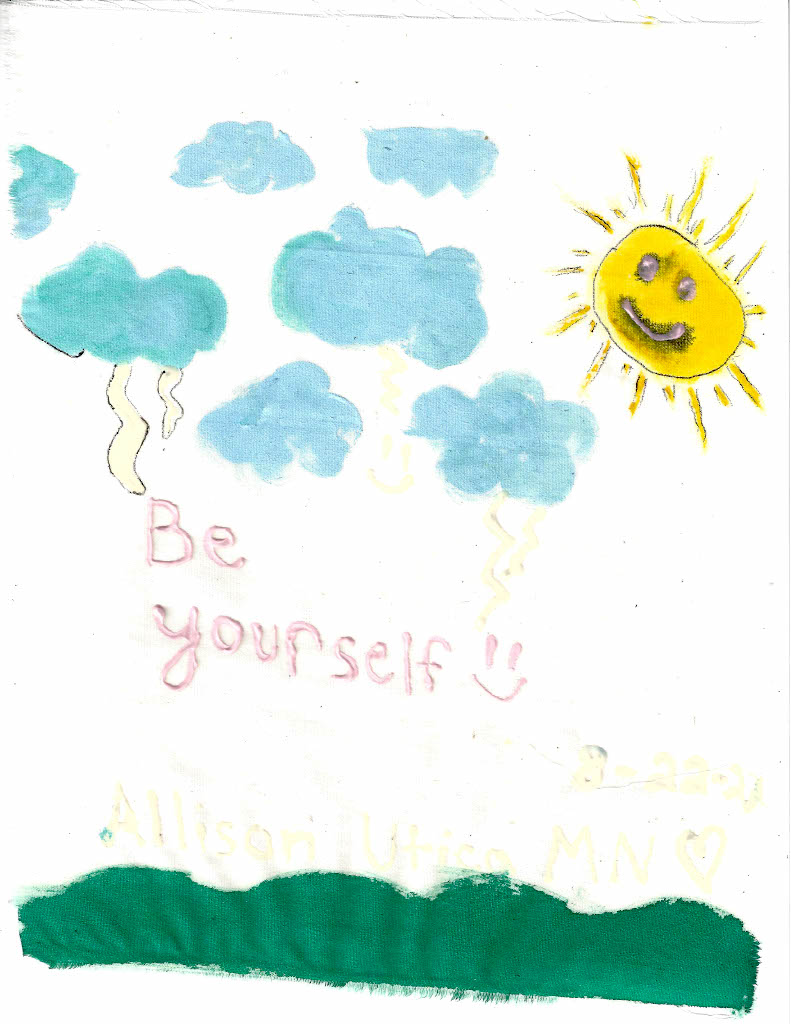 Be
yourself
8-22-21
Allison Utica MN